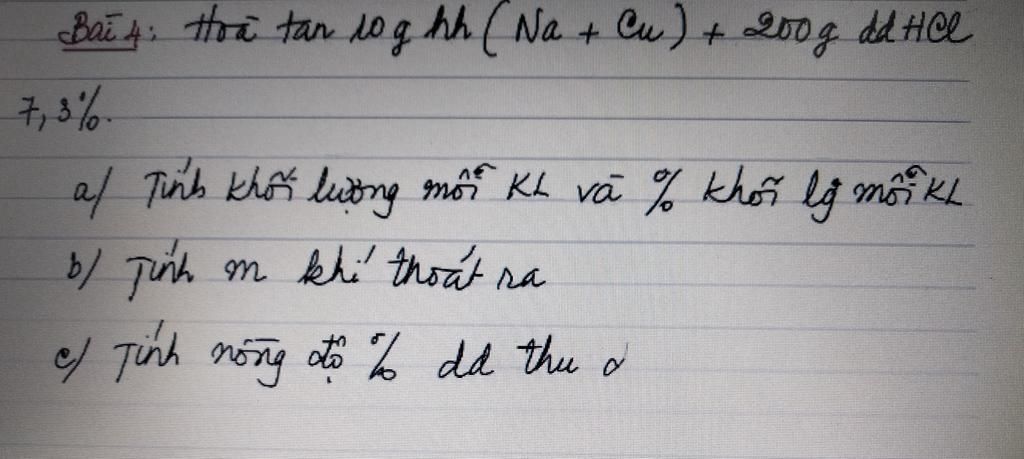 Bài 4: Hoà tan 10g hh (Na + Cu) + 200g dd HCl
7,3%.
a/ Tính khối lượng mỗi KL và % khối lg mỗi KL
b/ Tính m khí thoát ra
c/ Tính nồng độ % dd thu đ